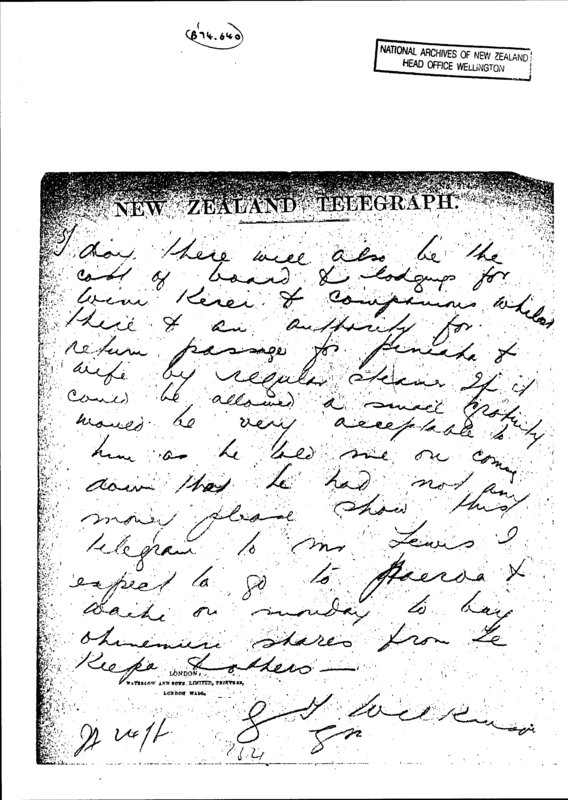 B74.640
NATIONAL ARCHIVES OF NEW ZEALAND
HEAD OFFICE WELLINGTON
NEW ZEALAND TELEGRAPH.
5/
day. There will also be the
cost of board & lodgings for
Wini Kerei & companions whilst
there & an authority for
return passage for Peniaha &
wife by regular steamer If it
could be allowed a small gratuity
would be very acceptable to
him as he told me on coming
down that he had not any
money please show this
telegram to Mr Lewis I
expect to go to Paeroa &
Waihi on Monday to buy
Ohinemuri shares from Te
Keepa & others —
LONDON:
WATERLOW AND SONS LIMITED, PRINTERS,
LONDON WALL.
G T Wilkinson